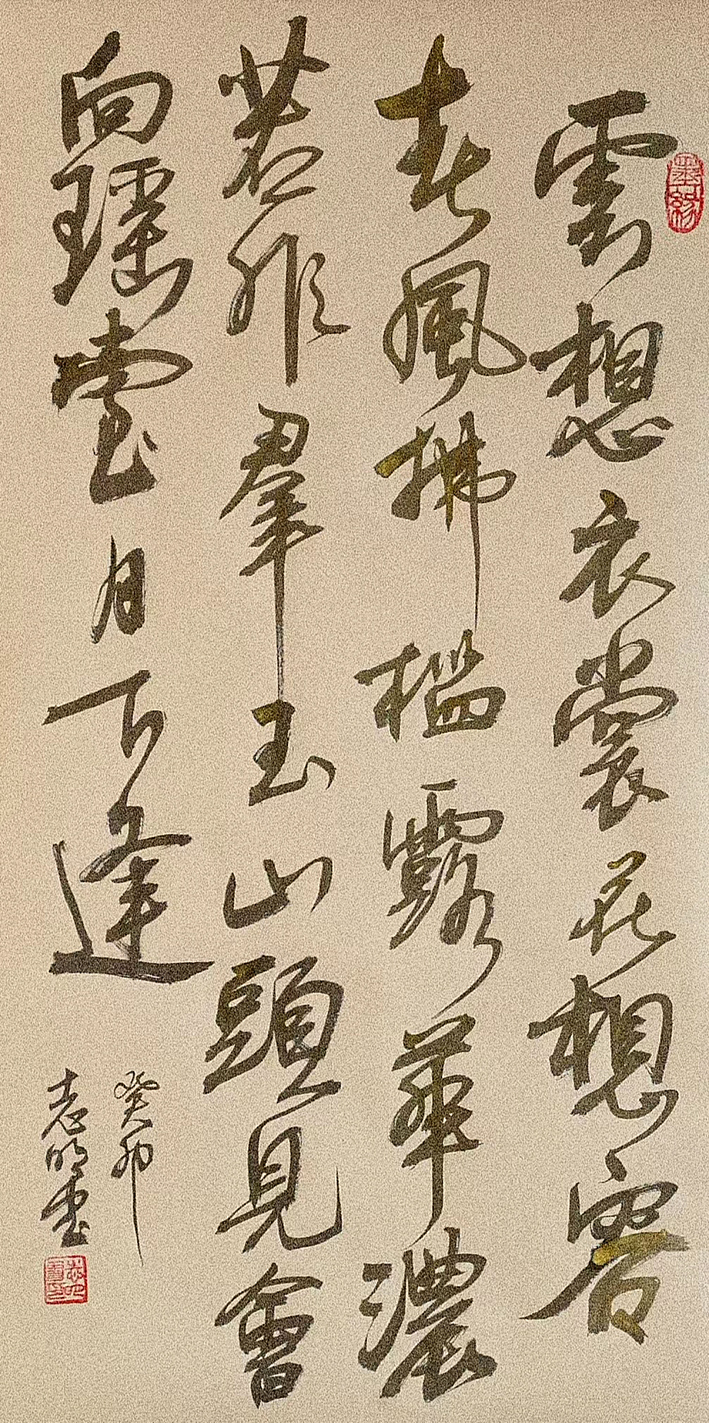 雲想衣裳花想容
春風拂檻露華濃
若非羣玉山頭見會
向瑤臺月下逢
癸卯
志明書
墨緣